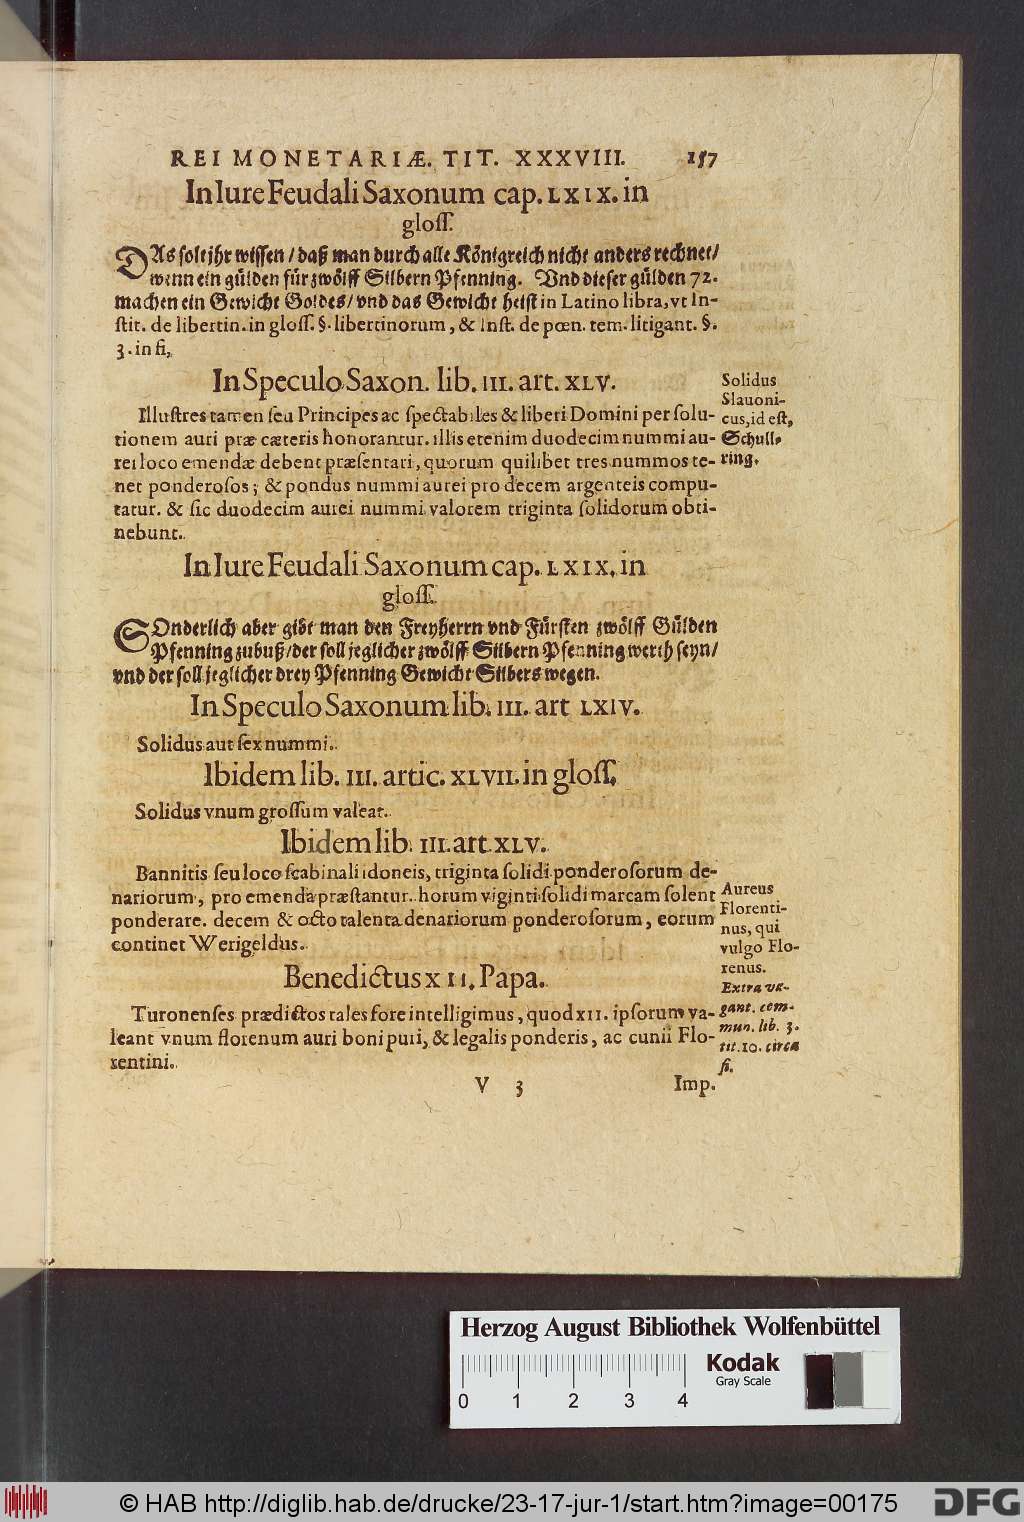 REI MONETARIÆ. TIT. XXXVIII. 157
In Iure Feudali Saxonum cap. LXIX. in
gloſſ.
DAs ſolt jhr wiſſen / daß man durch alle Königreich nicht anders rechnet /
wenn ein gülden für zwölff Silbern Pfenning. Vnd dieſer gülden 72.
machen ein Gewicht Goldes / vnd das Gewicht heiſt in Latino libra, vt In-
ſtit. de libertin. in gloſſ. §. libertinorum, & inſt. de pœn. tem. litigant. §.
3. in fi,
In Speculo Saxon. lib. III. art. XLV.
Illuſtres tamen ſeu Principes ac ſpectabiles & liberi Domini per ſolu-
tionem auri præ cæteris honorantur. illis etenim duodecim nummi au-
rei loco emendæ debent præſentari, quorum quilibet tres nummos te-
net ponderoſos; & pondus nummi aurei pro decem argenteis compu-
tatur. & ſic duodecim aurei nummi valorem triginta ſolidorum obti-
nebunt.
Solidus
Slauoni-
cus, id eſt,
Schull-
ring.
In Iure Feudali Saxonum cap. LXIX. in
gloſſ.
SOnderlich aber gibt man den Freyherrn vnd Fürſten zwölff Gülden
Pfenning zubuß / der ſoll jeglicher zwölff Silbern Pfenning werth ſeyn /
vnd der ſoll jeglicher drey Pfenning Gewicht Silbers wegen.
In Speculo Saxonum lib. III. art LXIV.
Solidus aut ſex nummi.
Ibidem lib. III. artic. XLVII. in gloſſ.
Solidus vnum groſſum valeat.
Ibidem lib. III. art. XLV.
Bannitis ſeu loco ſcabinali idoneis, triginta ſolidi ponderoſorum de-
nariorum, pro emenda præſtantur. horum viginti ſolidi marcam ſolent
ponderare. decem & octo talenta denariorum ponderoſorum, eorum
continet Werigeldus.
Benedictus XII. Papa.
Turonenſes prædictos tales fore intelligimus, quod XII. ipſorum va-
leant vnum florenum auri boni puri, & legalis ponderis, ac cunii Flo-
rentini.
Aureus
Florenti-
nus, qui
vulgo Flo-
renus.
Extrava-
gant. com-
mun. lib. 3.
tit. 10. circa
fi.
V 3 Imp.
Herzog August Bibliothek Wolfenbüttel
Kodak
Gray Scale
0 1 2 3 4
© HAB http://diglib.hab.de/drucke/23-17-jur-1/start.htm?image=00175
DFG